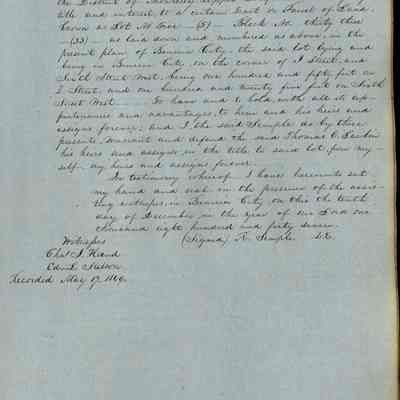 the District of
title and interest to a certain Tract or Parcel of Land,
known as Lot No four — (5) — Block No. thirty three
— (33) — as laid down and numbered as above, in the
present plan of Benicia City, the said lot lying and
being in Benicia City, on the corner of I Street, and
Sixth Street West, being one hundred and fifty feet on
I Street, and one hundred and twenty five feet on Sixth
Street West. To have and to hold, with all its ap-
purtenances and advantages, to him and his heirs and
assigns forever; and I the said Semple do by these
presents, warrant and defend the said Thomas O. Larkin
his heirs and assigns in the title to said lot, from my-
self, my heirs and assigns forever.
In testimony whereof I have hereunto set
my hand and seal in the presence of the assis-
ting witnesses, in Benicia City on this the tenth
day of December in the year of our Lord one
thousand eight hundred and forty seven.
Witnesses (Signed) R. Semple
Chas
Recorded May 17, 1849.